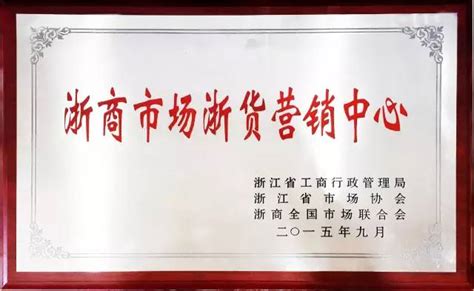 浙商市场浙货营销中心
浙江省工商行政管理局
浙江省市场协会
浙商全国市场联合会
二〇一五年九月